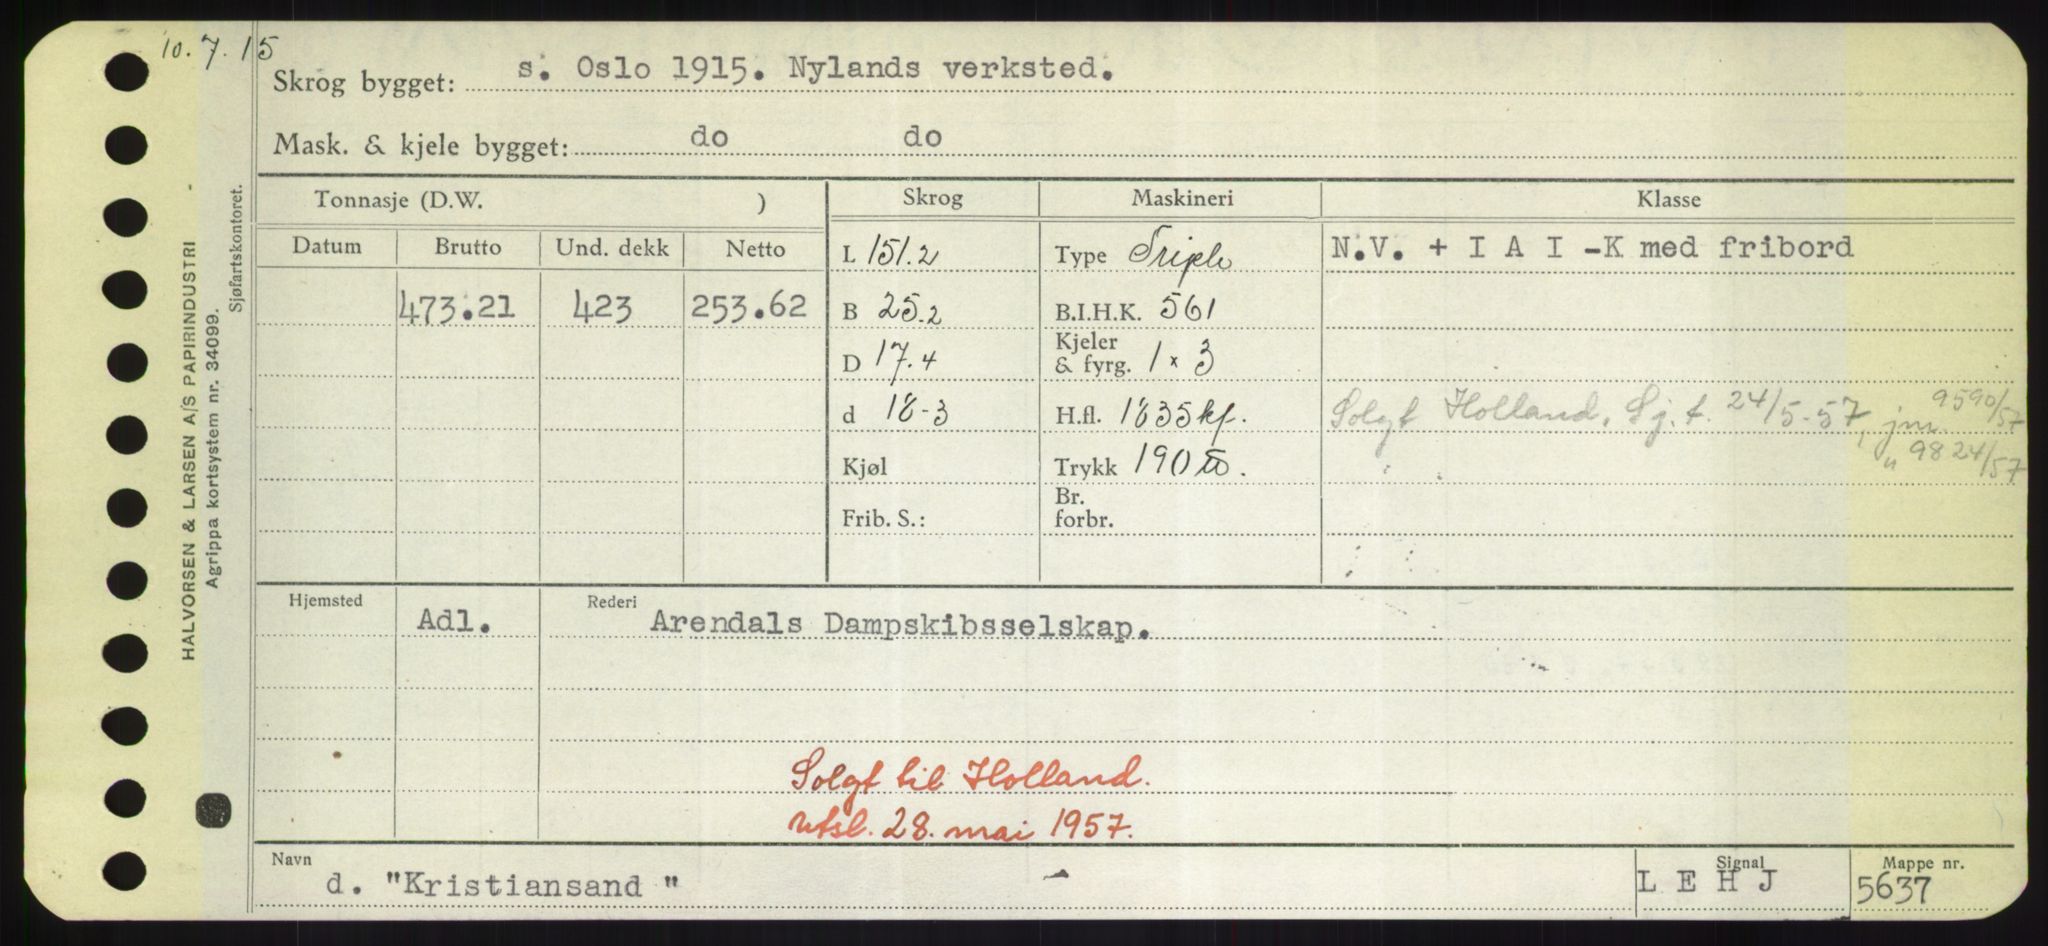 10.7.15
Skrog bygget: s. Oslo 1915. Nylands verksted.
Mask. & kjele bygget: do do
Tonnasje (D.W. ) Skrog Maskineri Klasse
Datum Brutto Und. dekk Netto L 151.2 Type Triple N.V. + I A I -K med fribord
473.21 423 253.62 B 25.2 B.I.H.K. 561
D 17.4 Kjeler & fyrg. 1 x 3
d 18-3 H.fl. 1835 kf. Solgt Holland, Sj. t. 24/5-57, jnr. 9590/57
Kjøl Trykk 190 " 9824/57
Frib. S.: Br. forbr.
Hjemsted Adl. Rederi Arendals Dampskibsselskap.
Solgt til Holland.
utsl. 28. mai 1957.
Navn d. "Kristiansand " Signal L E H J Mappe nr. 5637
HALVORSEN & LARSEN A/S PAPIRINDUSTRI
Agrippa kortsystem nr. 34099.
Sjøfartskontoret.